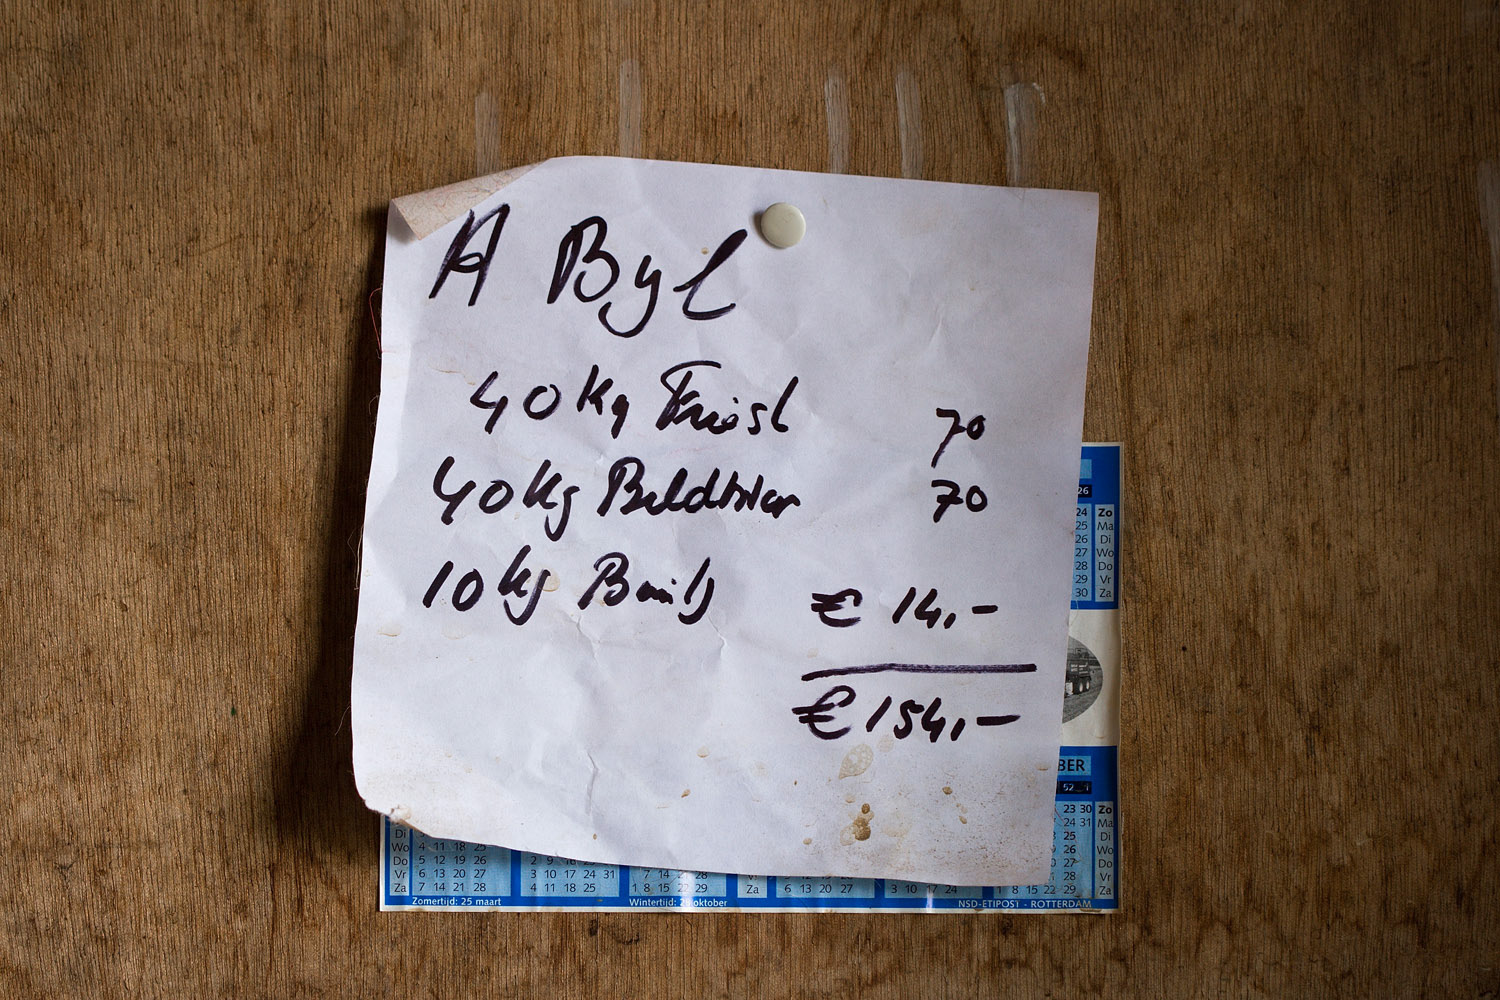 A Byl
40 kg Friesl 70
40 kg Beldhoen 70
10 kg Buitj € 14,-
€ 154,-
26
24 Zo
25 Ma
26 Di
27 Wo
28 Do
29 Vr
30 Za
BER
52
23 30 Zo
24 31 Ma
25 Di
26 Wo
27 Do
28 Vr
29 Za
Di
Wo 4 11 18 25
Do 5 12 19 26 2 9 16
Vr 6 13 20 27 3 10 17 24 31 7 14 21 28 Vr 6 13 20 27
Za 7 14 21 28 4 11 18 25 1 8 15 22 29 Za 3 10 17 24 1 8 15 22 29
Zomertijd: 25 maart Wintertijd: 28 oktober NSD-ETIPOST - ROTTERDAM